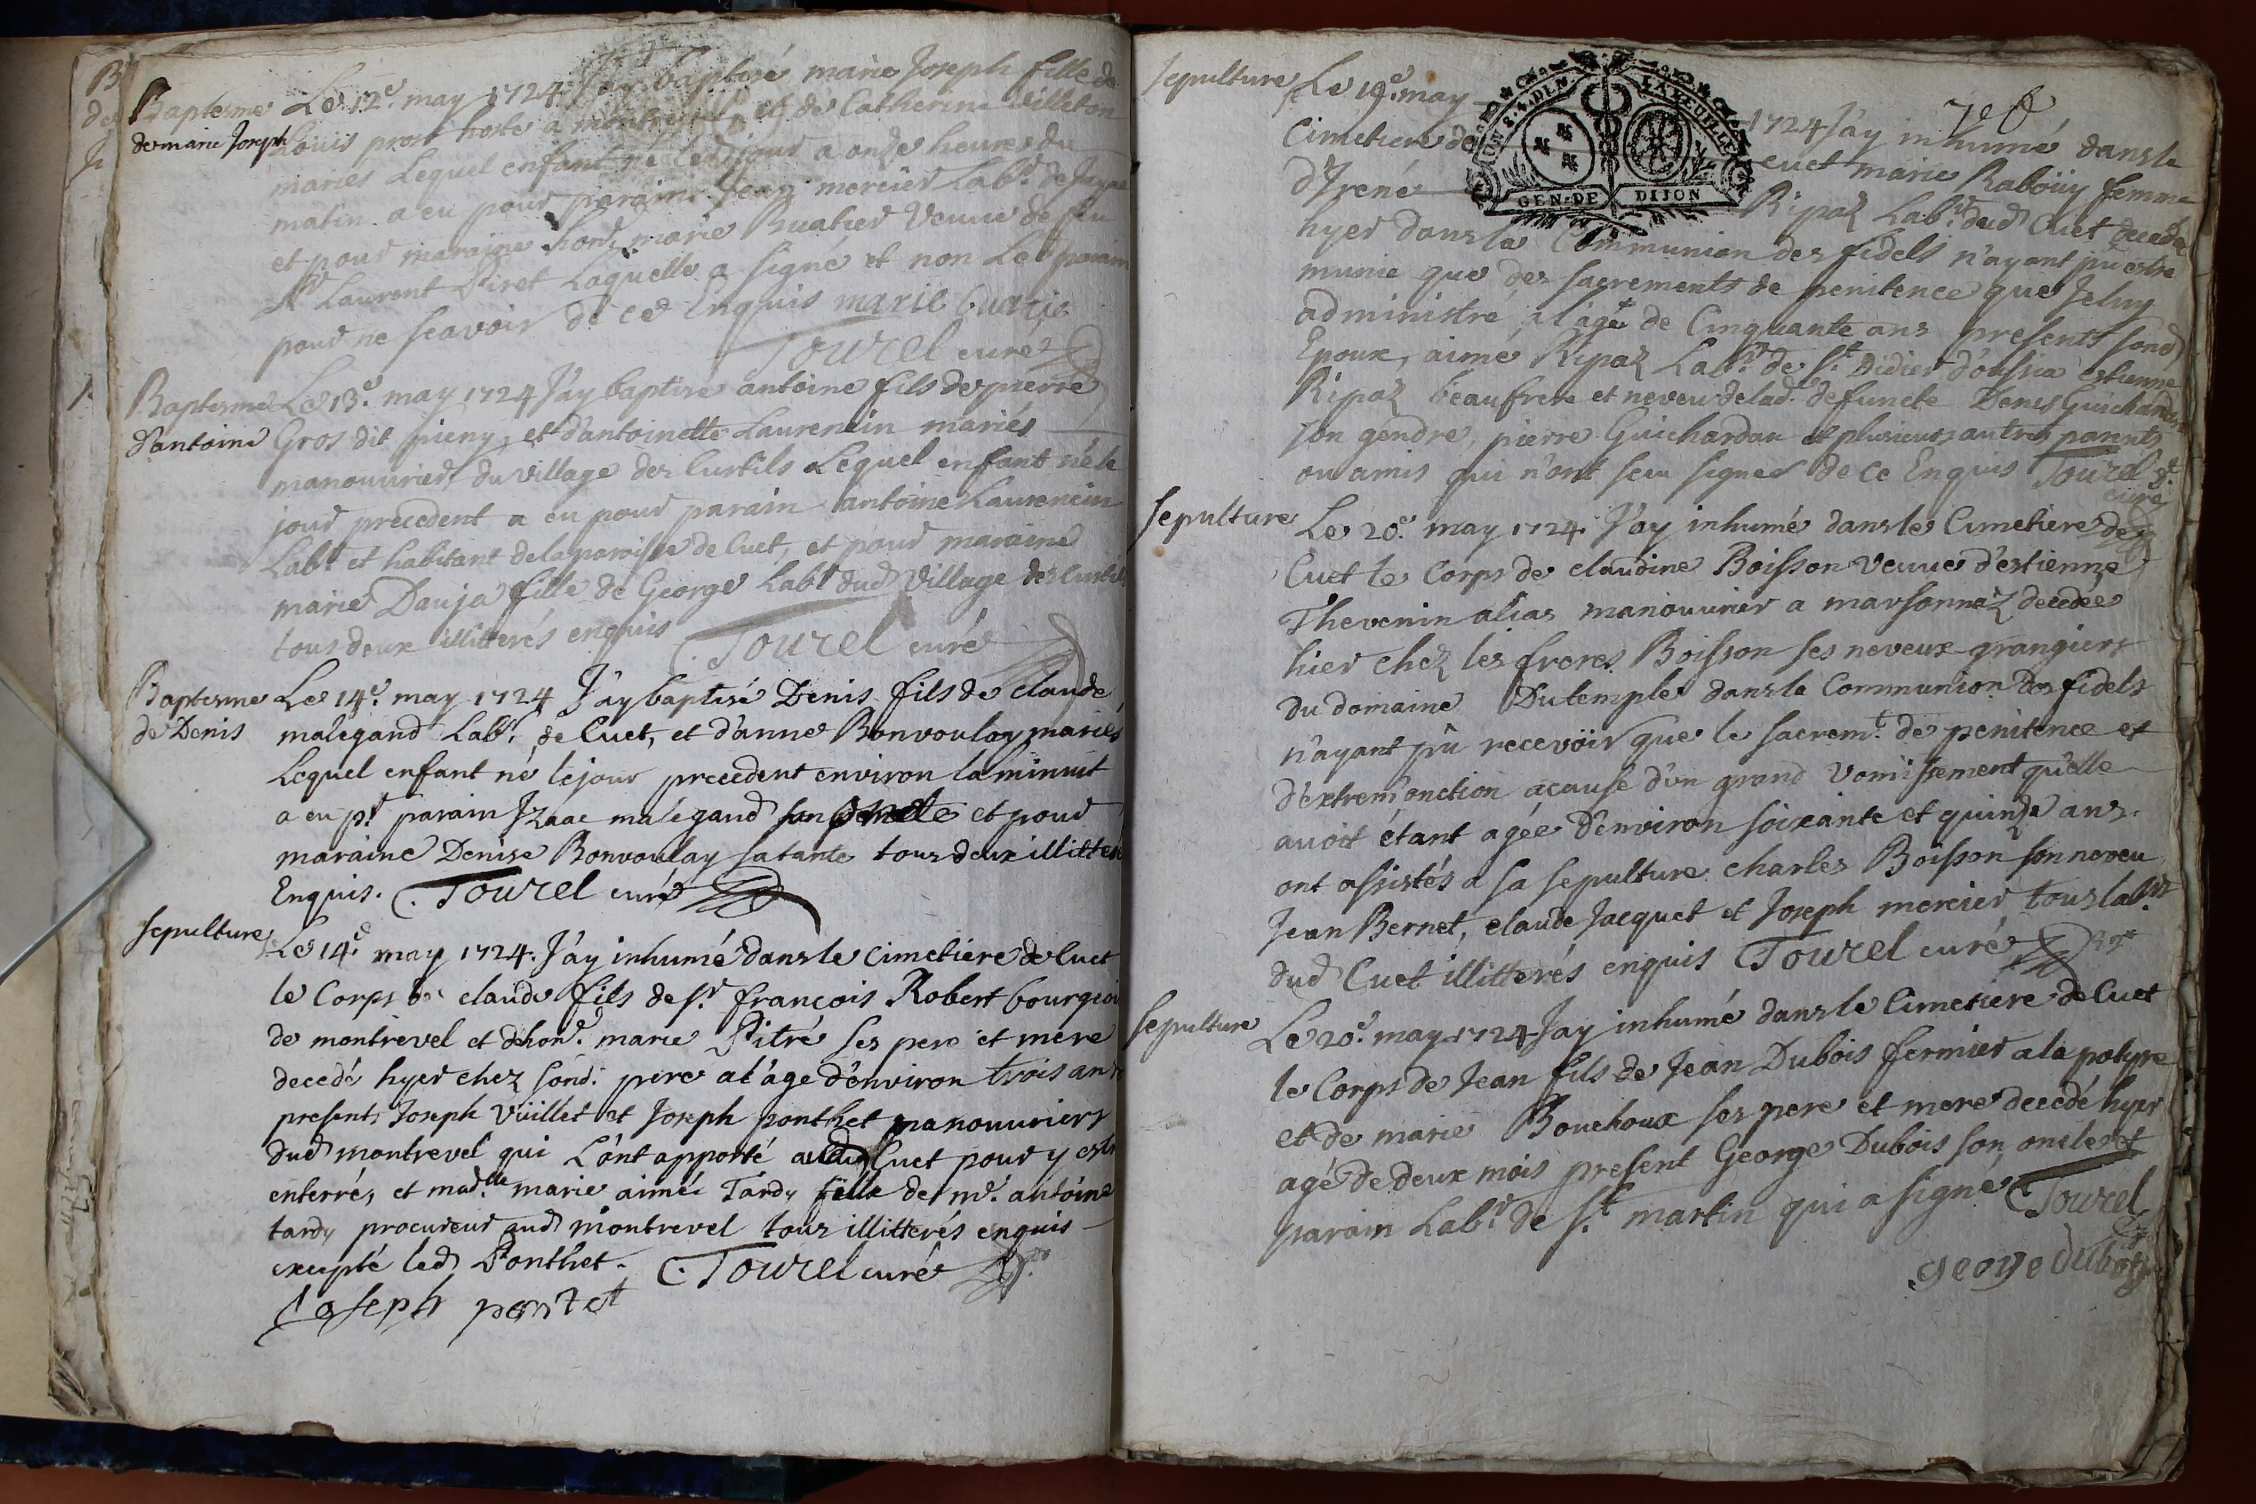 Baptesme
de marie Joseph
Le 12e. may 1724 J'ay baptisé marie Joseph fille de
Louis prost hoste a montrevel, et de Catherine
mariés Lequel enfant né led. jour a onze heures du
matin a eu pour parain Jean mercier Labr. de
et pour maraine hone. marie Buatier Veuve de feu
Sr Laurent Piret Laquelle a signé et non Led parain
pour ne scavoir de ce Enquis marie buatie
Tourel curé
Baptesme
d'antoine
Le 13e. may 1724 J'ay baptisé antoine fils de pierre
Gros dit pieny, et d'antoinette Laurencin mariés
manouvrier du village des Curtils Lequel enfant né le
jour precedent a eu pour parain antoine Laurencin
Labr. et habitant de la paroisse de Cuet, et pour maraine
marie Dauja fille de George Labr dud village des Curtils
tous deux illitterés enquis Tourel curé
Baptesme
de Denis
Le 14e. may 1724 J'ay baptisé Denis fils de claude
malegand Labr. de Cuet, et d'anne Bonvoulay mariés
Lequel enfant né le jour precedent environ la minuit
a eu pr. parain Izaac malegand son oncle et pour
maraine Denise Bonvoulay sa tante tous deux illitterés
Enquis. Tourel curé
sepulture
Le 14e. may 1724. J'ay inhumé dans le Cimetiere de Cuet
le Corps de claude fils de sr. françois Robert bourgeois
de montrevel et de hone. marie Pitré ses pere et mere
decedé hyer chez sond. pere a l'âge d'environ trois ans
presents Joseph Vüillet et Joseph ponthet manouvriers
dud montrevel qui L'ont apporté aud Cuet pour y estre
enterré, et madlle. marie aimée Tardy fille de me. antoine
tardy procureur aud montrevel tous illitterés enquis
excepté led Ponthet. Tourel curé
Joseph pontet
sepulture
Le 19e. may 1724 J'ay inhumé dans le
Cimetiere de Cuet marie Raboüy femme
d'Irené Ripaz Labr. dud Cuet decedée
hyer dans la Communion des fidels n'ayant pu estre
munie que des sacrements de penitence que Je luy
administré, a l'age de Cinquante ans presents sond
Epoux, aimé Ripaz Labr. de st. Didier d'oussia estienne
Ripaz beaufrere et neveu de lad. defuncte Denis Guichardan
son gendre, pierre Guichardan et plusieurs autres parents
ou amis qui n'ont sceu signer de ce Enquis Tourel
curé
GEN. DE DIJON
sepulture
Le 20e. may 1724. J'ay inhumé dans le Cimetiere de
Cuet le Corps de claudine Boisson Veuve d'estienne
Thevenin alias manouvrier a marsonnaz decedée
hier chez les freres Boisson ses neveux grangiers
du domaine Du temple dans la Communion des fidels
n'ayant pû recevoir que le sacremt. de penitence et
d'extrem'onction a cause d'un grand Vomissement qu'elle
avoit étant agée d'environ soixante et quinze ans.
ont assistés a sa sepulture charles Boisson son neveu
Jean Bernet, claude Jacquet et Joseph mercier tous labrs.
dud Cuet illitterés enquis Tourel curé
sepulture
Le 20e. may 1724 J'ay inhumé dans le Cimetiere de Cuet
le Corps de Jean fils de Jean Dubois fermier a la poype
et de marie Bouchoux ses pere et mere decedé hyer
agé de deux mois present George Dubois son oncle et
parain Labr. de st. martin qui a signé Tourel
george dubois